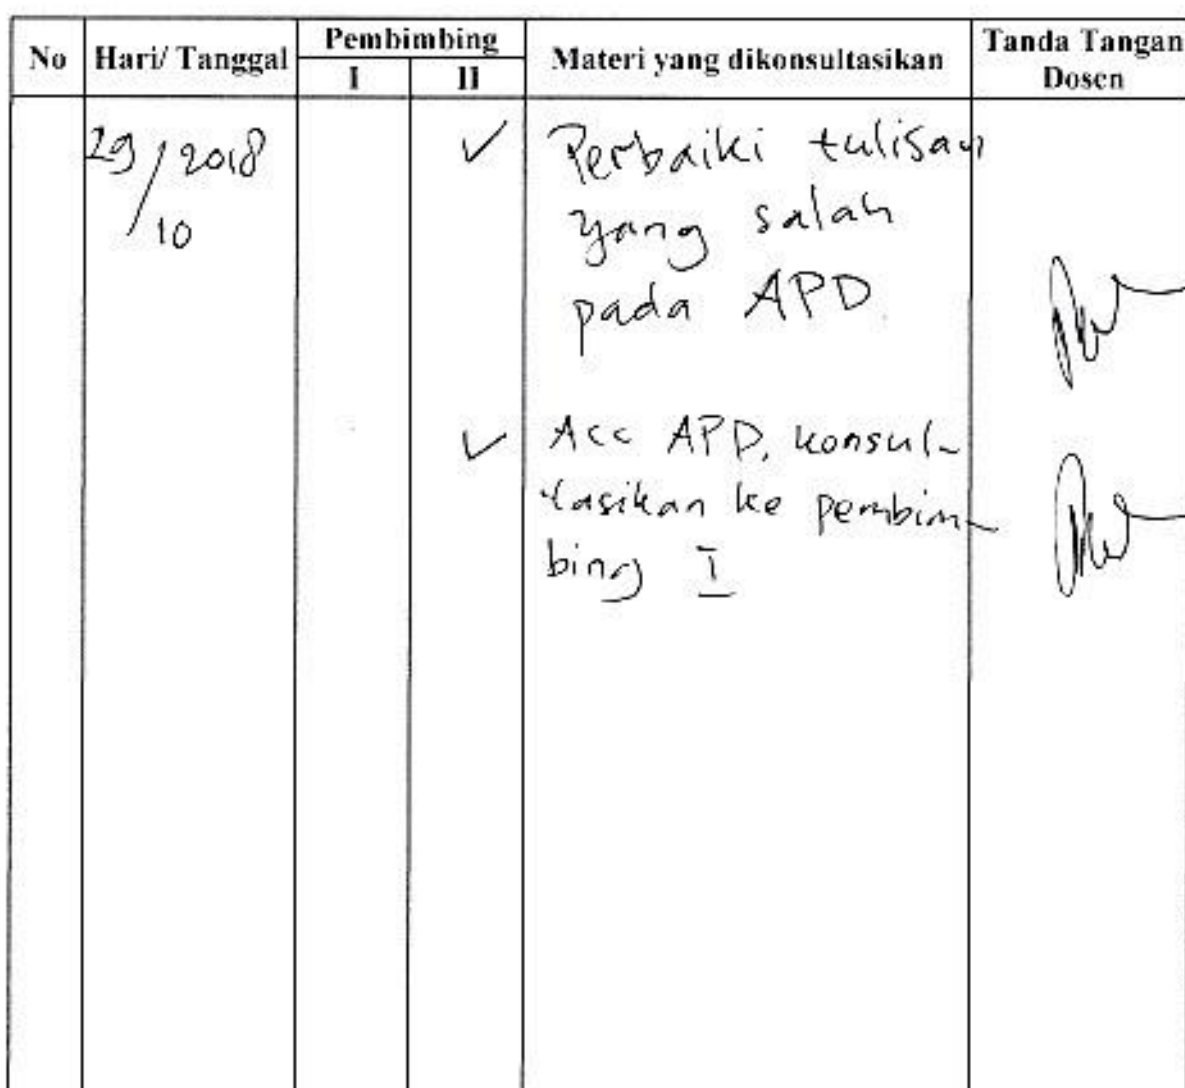 No Hari/ Tanggal Pembimbing Materi yang dikonsultasikan Tanda Tangan
I II Dosen
29/2018 ✓ Perbaiki tulisan
10 yang salah
pada APD.
✓ Acc APD, konsul-
tasikan ke pembim-
bing I